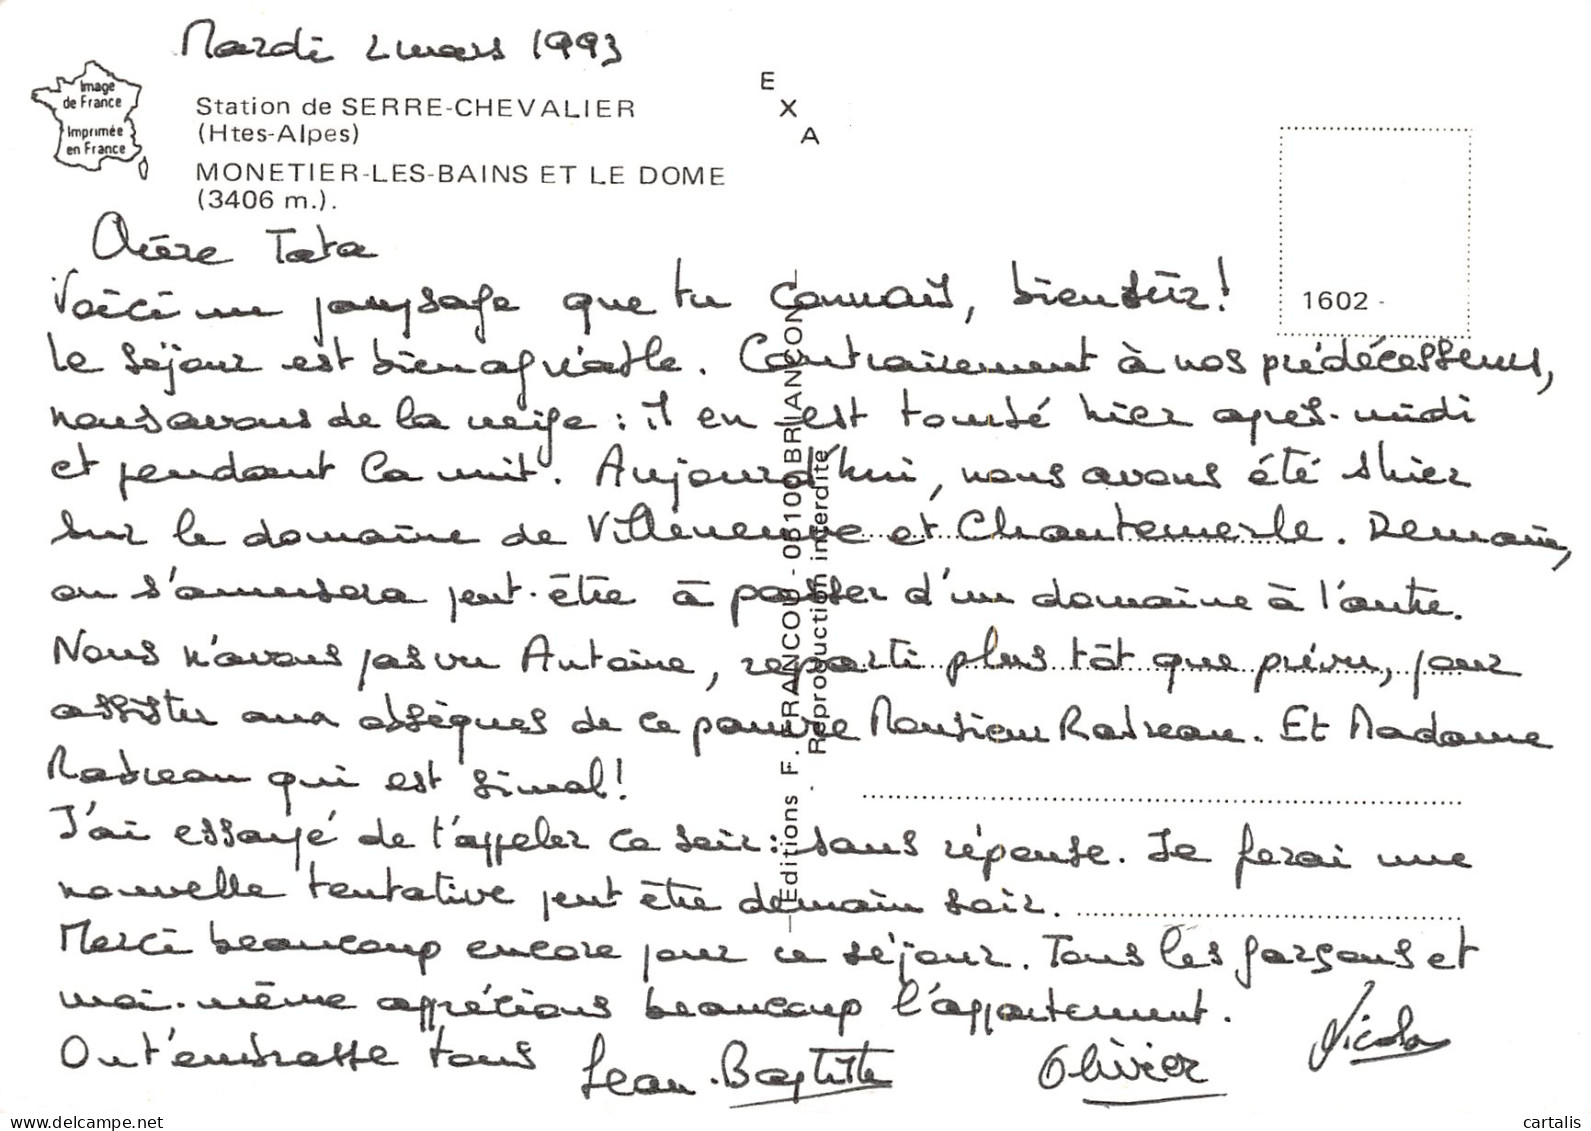 Mardi 2 mars 1993
Image
de France
Imprimée
en France
Station de SERRE-CHEVALIER
(Htes-Alpes)
MONETIER-LES-BAINS ET LE DOME
(3406 m.).
E
X
A
1602 -
Chère Tata
Voici un paysage que tu connais, bien sûr !
Le séjour est bien agréable. Contrairement à nos prédécesseurs,
nous avons de la neige : il en est tombé hier après-midi
et pendant la nuit. Aujourd'hui, nous avons été skier
sur le domaine de Villeneuve et Chantemerle. Demain,
on s'amusera peut-être à passer d'un domaine à l'autre.
Nous n'avons pas vu Antoine, reparti plus tôt que prévu, pour
assister aux obsèques de ce pauvre Monsieur Rabreau. Et Madame
Rabreau qui est si mal !
J'ai essayé de t'appeler ce soir : sans réponse. Je ferai une
nouvelle tentative peut être demain soir.
Merci beaucoup encore pour ce séjour. Tous les garçons et
moi-même apprécions beaucoup l'appartement.
On t'embrasse tous
Jean-Baptiste
Olivier
Nicolas
Editions F. FRANCOU - 05100 BRIANCON
Reproduction interdite
© cartalis